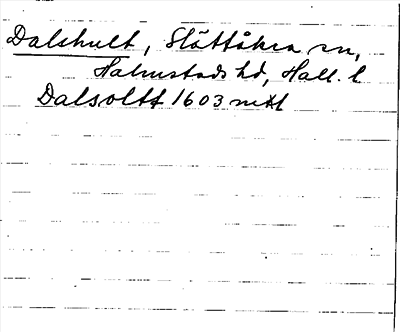 Dalshult, Slättåkra sn,
Halmstads hd, Hall. l
Dalsoltt 1603 mtl